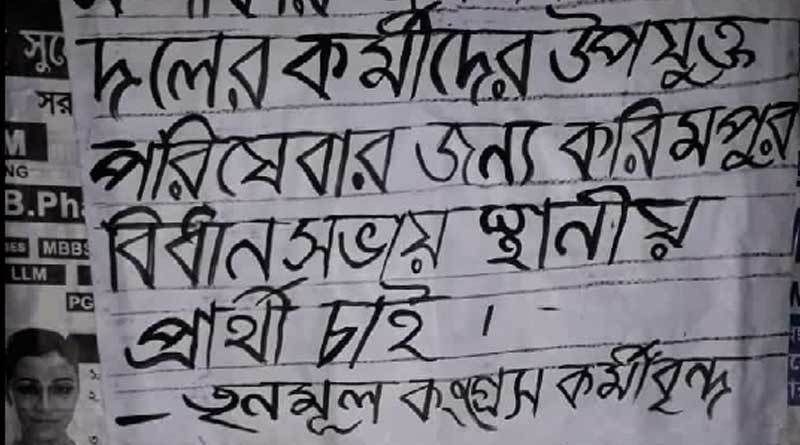 দলের কর্মীদের উপযুক্ত
পরিষেবার জন্য করিমপুর
বিধানসভায় স্থানীয়
প্রার্থী চাই ।
— তৃনমূল কংগ্রেস কর্মীবৃন্দ
সর
M
NG
B.Pha
MBBS
LLM
PG
১.
২
৩